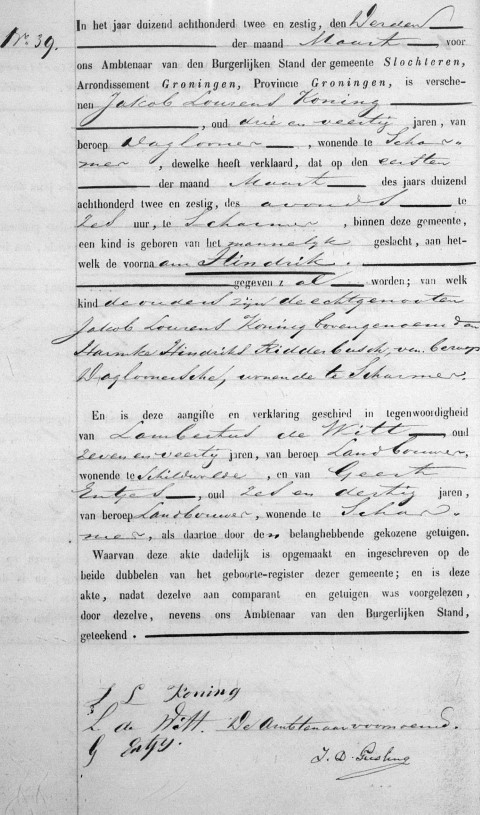 No. 39.
In het jaar duizend achthonderd twee en zestig, den Derden
der maand Maart voor
ons Ambtenaar van den Burgerlijken Stand der gemeente Slochteren,
Arrondissement Groningen, Provincie Groningen, is versche-
nen Jakob Lourens Koning
, oud drie en veertig jaren, van
beroep Daglooner, wonende te Schar-
mer, dewelke heeft verklaard, dat op den eersten
der maand Maart des jaars duizend
achthonderd twee en zestig, des avonds te
zes uur, te Scharmer, binnen deze gemeente,
een kind is geboren van het mannelijk geslacht, aan het-
welk de voorna am Hindrik.
gegeven z al worden; van welk
kind de ouders zijn de echtgenooten
Jakob Lourens Koning bovengenoemd en
Harmke Hindriks Ridderbusch, van beroep
Dagloonersche, wonende te Scharmer.
En is deze aangifte en verklaring geschied in tegenwoordigheid
van Lambertus de Witt oud
zeven en veertig jaren, van beroep Landbouwer,
wonende te Schildwolde, en van Geert
Entjes, oud zes en dertig jaren,
van beroep Landbouwer, wonende te Schar-
mer, als daartoe door den belanghebbende gekozene getuigen.
Waarvan deze akte dadelijk is opgemaakt en ingeschreven op de
beide dubbelen van het geboorte-register dezer gemeente; en is deze
akte, nadat dezelve aan comparant en getuigen was voorgelezen,
door dezelve, nevens ons Ambtenaar van den Burgerlijken Stand,
geteekend.
J L Koning
L. de Witt. De Ambtenaar voornoemd.
G Entjes.